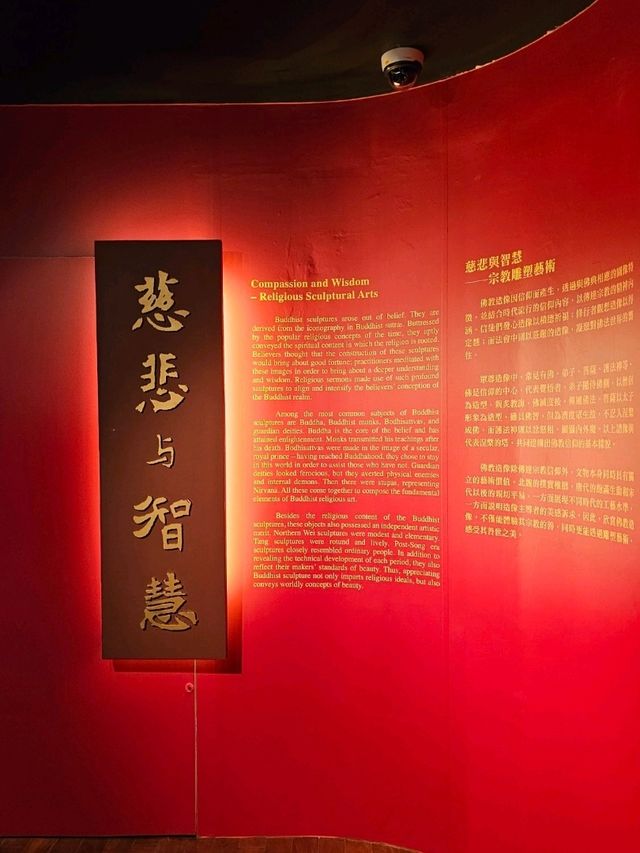 慈
悲
与
智
慧
Compassion and Wisdom
– Religious Sculptural Arts
Buddhist sculptures arose out of belief. They are
derived from the iconography in Buddhist sutras. Buttressed
by the popular religious concepts of the time, they aptly
conveyed the spiritual content in which the religion is rooted.
Believers thought that the construction of these sculptures
would bring about good fortune; practitioners meditated with
these images in order to bring about a deeper understanding
and wisdom. Religious sermons made use of such profound
sculptures to align and intensify the believers' conception of
the Buddhist realm.
Among the most common subjects of Buddhist
sculptures are Buddha, Buddhist monks, Bodhisattvas, and
guardian deities. Buddha is the core of the belief and has
attained enlightenment. Monks transmitted his teachings after
his death. Bodhisattvas were made in the image of a secular,
royal prince – having reached Buddhahood, they chose to stay
in this world in order to assist those who have not. Guardian
deities looked ferocious, but they averted physical enemies
and internal demons. Then there were stupas, representing
Nirvana. All these come together to compose the fundamental
elements of Buddhist religious art.
Besides the religious content of the Buddhist
sculptures, these objects also possessed an independent artistic
merit. Northern Wei sculptures were modest and elementary.
Tang sculptures were round and lively. Post-Song era
sculptures closely resembled ordinary people. In addition to
revealing the technical development of each period, they also
reflect their makers' standards of beauty. Thus, appreciating
Buddhist sculpture not only imparts religious ideals, but also
conveys worldly concepts of beauty.
慈悲與智慧
——宗教雕塑藝術
佛教造像因信仰而產生，透過與佛典相應的圖像特
徵，並結合時代流行的信仰內容，以傳達宗教的精神內
涵。信徒們發心造像以積德祈福；修行者觀想造像以得
定慧；
性。
眾尊造像中，常見有佛、弟子、菩薩、護法神等。
佛是信仰的中心，代表覺悟者。弟子隨侍佛側，以僧侶
為造型，
形象為造型，
成佛。
代表涅槃的塔，共同建構出佛教信仰的基本樣貌。
佛教造像除傳達宗教信仰外，文物本身同時具有獨
立的藝術價值。北魏的樸實稚拙、唐代的飽滿生動和宋
代以後的親切平易，一方面展現不同時代的工藝水準，
一方面說明造像主尊者的美感訴求。因此，欣賞佛教造
像，不僅能體驗其宗教的善，同時更能透過雕塑藝術，
感受其普世之美。